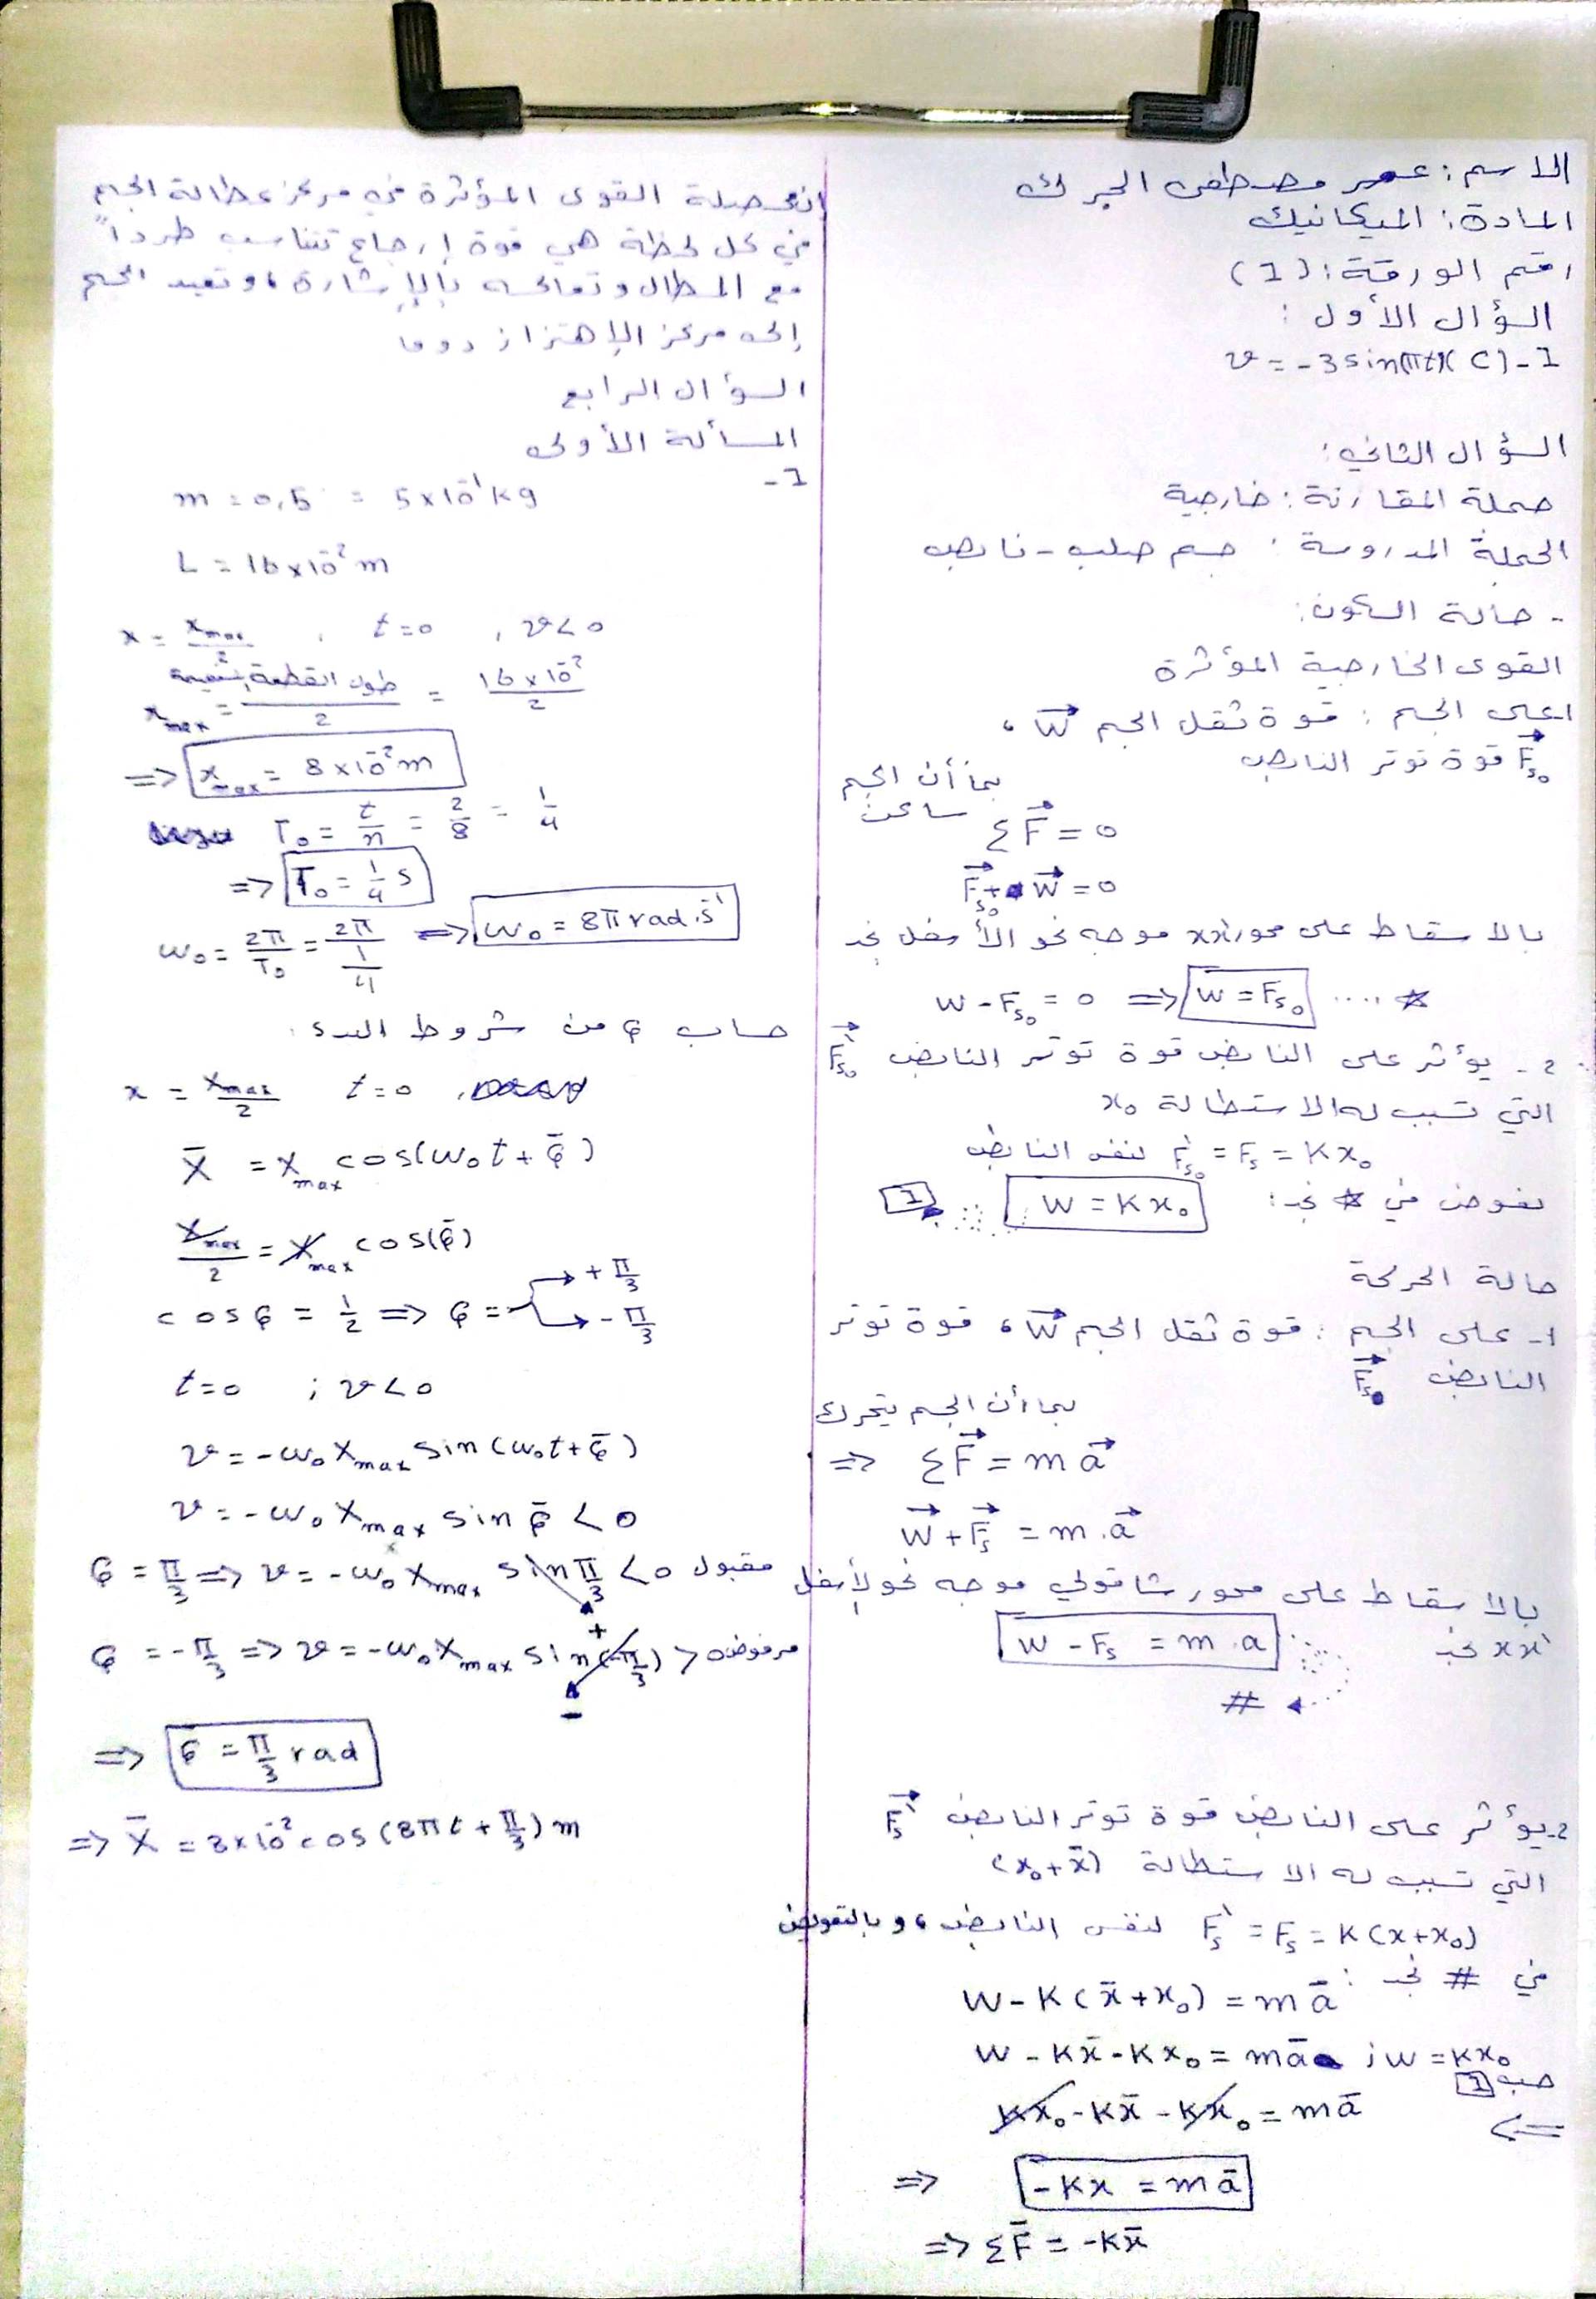 الاسم: عمر مصطفى الجرك
المادة: الميكانيك
رقم الورقة: (1)
السؤال الأول:
1- (C) v = -3 sin(πt)
السؤال الثاني:
جملة المقارنة: خارجية
الجملة المدروسة: جسم صلب - نابض
- حالة السكون:
القوى الخارجية المؤثرة
1- على الجسم: قوة ثقل الجسم W⃗،
F⃗s₀ قوة توتر النابض
بما أن الجسم
ساكن
ΣF⃗ = 0
F⃗s₀ + W⃗ = 0
بالاسقاط على محور xx' موجه نحو الأسفل نجد
W - Fs₀ = 0 => W = Fs₀ .... ☆
2- يؤثر على النابض قوة توتر النابض F⃗'s₀
التي تسبب له الاستطالة x₀
F's₀ = Fs = Kx₀ لنفس النابض
نعوض في ☆ نجد:
W = Kx₀ ..... [1]
حالة الحركة
1- على الجسم: قوة ثقل الجسم W⃗، قوة توتر
النابض F⃗s
بما أن الجسم يتحرك
=> ΣF⃗ = m a⃗
W⃗ + F⃗s = m . a⃗
بالاسقاط على محور شاقولي موجه نحو الأسفل
xx' نجد
W - Fs = m . a
#
2- يؤثر على النابض قوة توتر النابض F⃗'s
التي تسبب له الاستطالة (x₀ + x̄)
F's = Fs = K(x + x₀) لنفس النابض، وبالتعويض
في # نجد:
W - K(x̄ + x₀) = m ā
W - Kx̄ - Kx₀ = m ā ; W = Kx₀
حسب [1]
=>
Kx₀ - Kx̄ - Kx₀ = m ā
=> -Kx = m ā
=> ΣF̄ = -Kx̄
محصلة القوى المؤثرة في مركز عطالة الجسم
في كل لحظة هي قوة إرجاع تتناسب طرداً
مع المطال وتعاكسه بالإشارة، وتعيد الجسم
إلى مركز الإهتزاز دوما
السؤال الرابع
المسألة الأولى
1-
m = 0,5 = 5×10⁻¹ kg
L = 16×10⁻² m
x = xmax/2 , t = 0 , v < 0
xmax = طول القطعة المستقيمة/2 = 16×10⁻²/2
=> xmax = 8×10⁻² m
T₀ = t/n = 2/8 = 1/4
=> T₀ = 1/4 s
ω₀ = 2π/T₀ = 2π/(1/4) => ω₀ = 8π rad.s⁻¹
حساب φ من شروط البدء:
x = xmax/2 t = 0
X̄ = xmax cos(ω₀t + φ̄)
xmax/2 = xmax cos(φ̄)
cos φ = 1/2 => φ = → +π/3
→ -π/3
t = 0 ; v < 0
v = -ω₀ xmax sin(ω₀t + φ̄)
v = -ω₀ xmax sin φ̄ < 0
φ = π/3 => v = -ω₀ xmax sin π/3 < 0 مقبول
+
φ = -π/3 => v = -ω₀ xmax sin(-π/3) > 0 مرفوض
-
=> φ̄ = π/3 rad
=> X̄ = 8×10⁻² cos(8πt + π/3) m